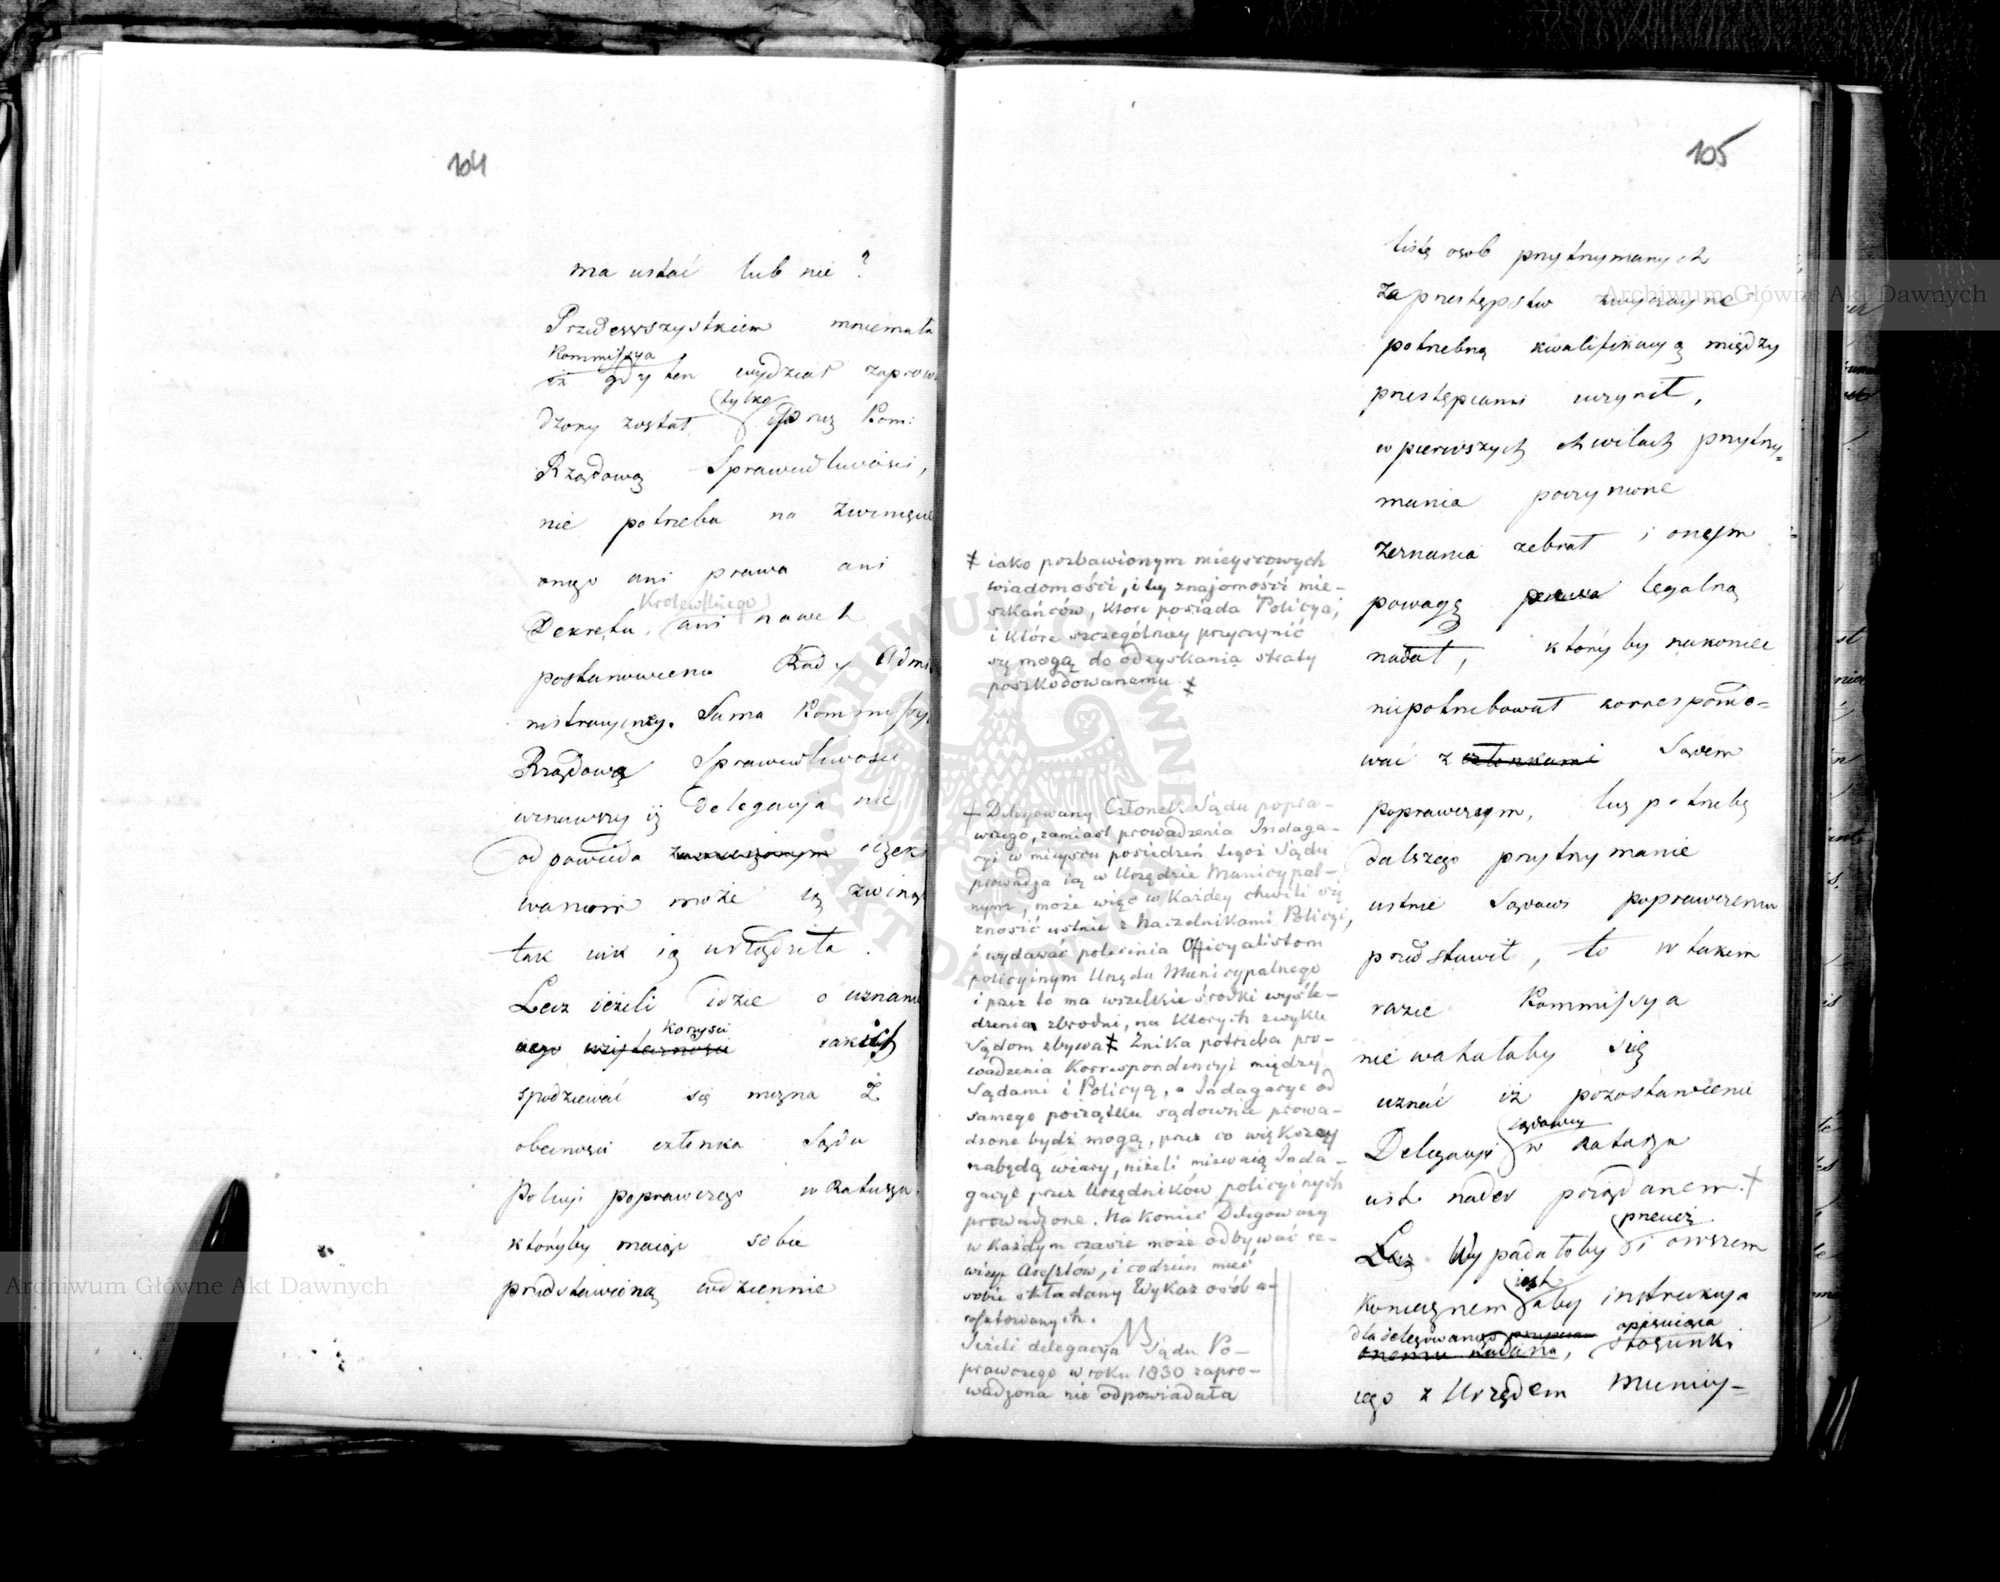 104
ma ustać lub nie?
Przedewszystkiem mniemała
Kommissya
iż gdy ten wydział zaprowa
tylko
dzony został przez Kom:
Rządową Sprawiedliwości,
nie potrzeba na zwinięcie
onego ani prawa ani
Królewskiego
Dekretu, ani nawet
postanowienia Rady Admi
nistracyiney. Sama Kommissya
Rządowa Sprawiedliwości
uznawszy iż delegacya nie
odpowiada oczeki
waniom może ią zwinąć
tak iak ią urządziła.
Lecz ieżeli idzie o uznanie
korzyści
iakich
spodziewać się można z
obecności członka Sądu
Policyi poprawczego w Ratuszu.
któryby maiąc sobie
przedstawioną codziennie
105
listę osob przytrzymanych
za przestępstw zwyczayne
potrzebną kwalifikacyą między
przestępcami uczynił,
w pierwszych chwilach przytrzy=
mania poczynione
zeznania zebrał i onęym
powagę legalną
nadał, któryby nakoniec
niepotrzebował korrespondo=
wać z członkami Sądem
poprawczym, lecz potrzebę
dalszego przytrzymania
ustnie Sądowi poprawczemu
przedstawił, to w takim
razie Kommissya
nie wahałaby się
uznać iż pozostawienie
sądowey
Delegacyi w Ratuszu
iest nader pożądanem. +
przecież
Lecz Wypadałoby i owszem
iest
koniecznem aby instrukcya
dla delegowanego opisuiąca
onemu nadana, stosunki
iego z Urzędem Municy-
‡ iako pozbawionym mieyscowych
wiadomości, i tey znajomości mie-
szkańców, które posiada Policya,
i które szczególniey przyczynić
się mogą do odzyskania straty
poszkodowanemu ‡
+ Delegowany Członek Sądu popra-
wczego, zamiast prowadzenia Indaga-
cyi w mieyscu posiedzeń tegoż Sądu
prowadzą ią w Urzędzie Municypal-
nym, może więc w każdey chwili się
znosić ustnie z Naczelnikami Policyi,
i wydawać polecenia Officyalistom
policyinym Urzędu Municypalnego
i przez to ma wszelkie środki wyśle-
dzenia zbrodni, na których zwykle
Sądom zbywa ‡ Znika potrzeba pro-
wadzenia Korrespondencyi między
Sądami i Policyą, a Indagacye od
samego początku sądownie prowa-
dzone bydź mogą, przez co większey
nabędą wiary, niżeli miewaią Inda-
gacye przez Urzędników policyinych
prowadzone. Nakoniec Delegowany
w każdym czasie może odbywać re-
wizye Aresztów, i codzień mieć
sobie składany Wykaz osób a-
resztowanych.
Jeżeli delegacya Sądu Po-
prawczego w roku 1830 zapro-
wadzona nie odpowiadała
Archiwum Główne Akt Dawnych
Archiwum Główne Akt Dawnych
ARCHIWUM GŁÓWNE AKT DAWNYCH